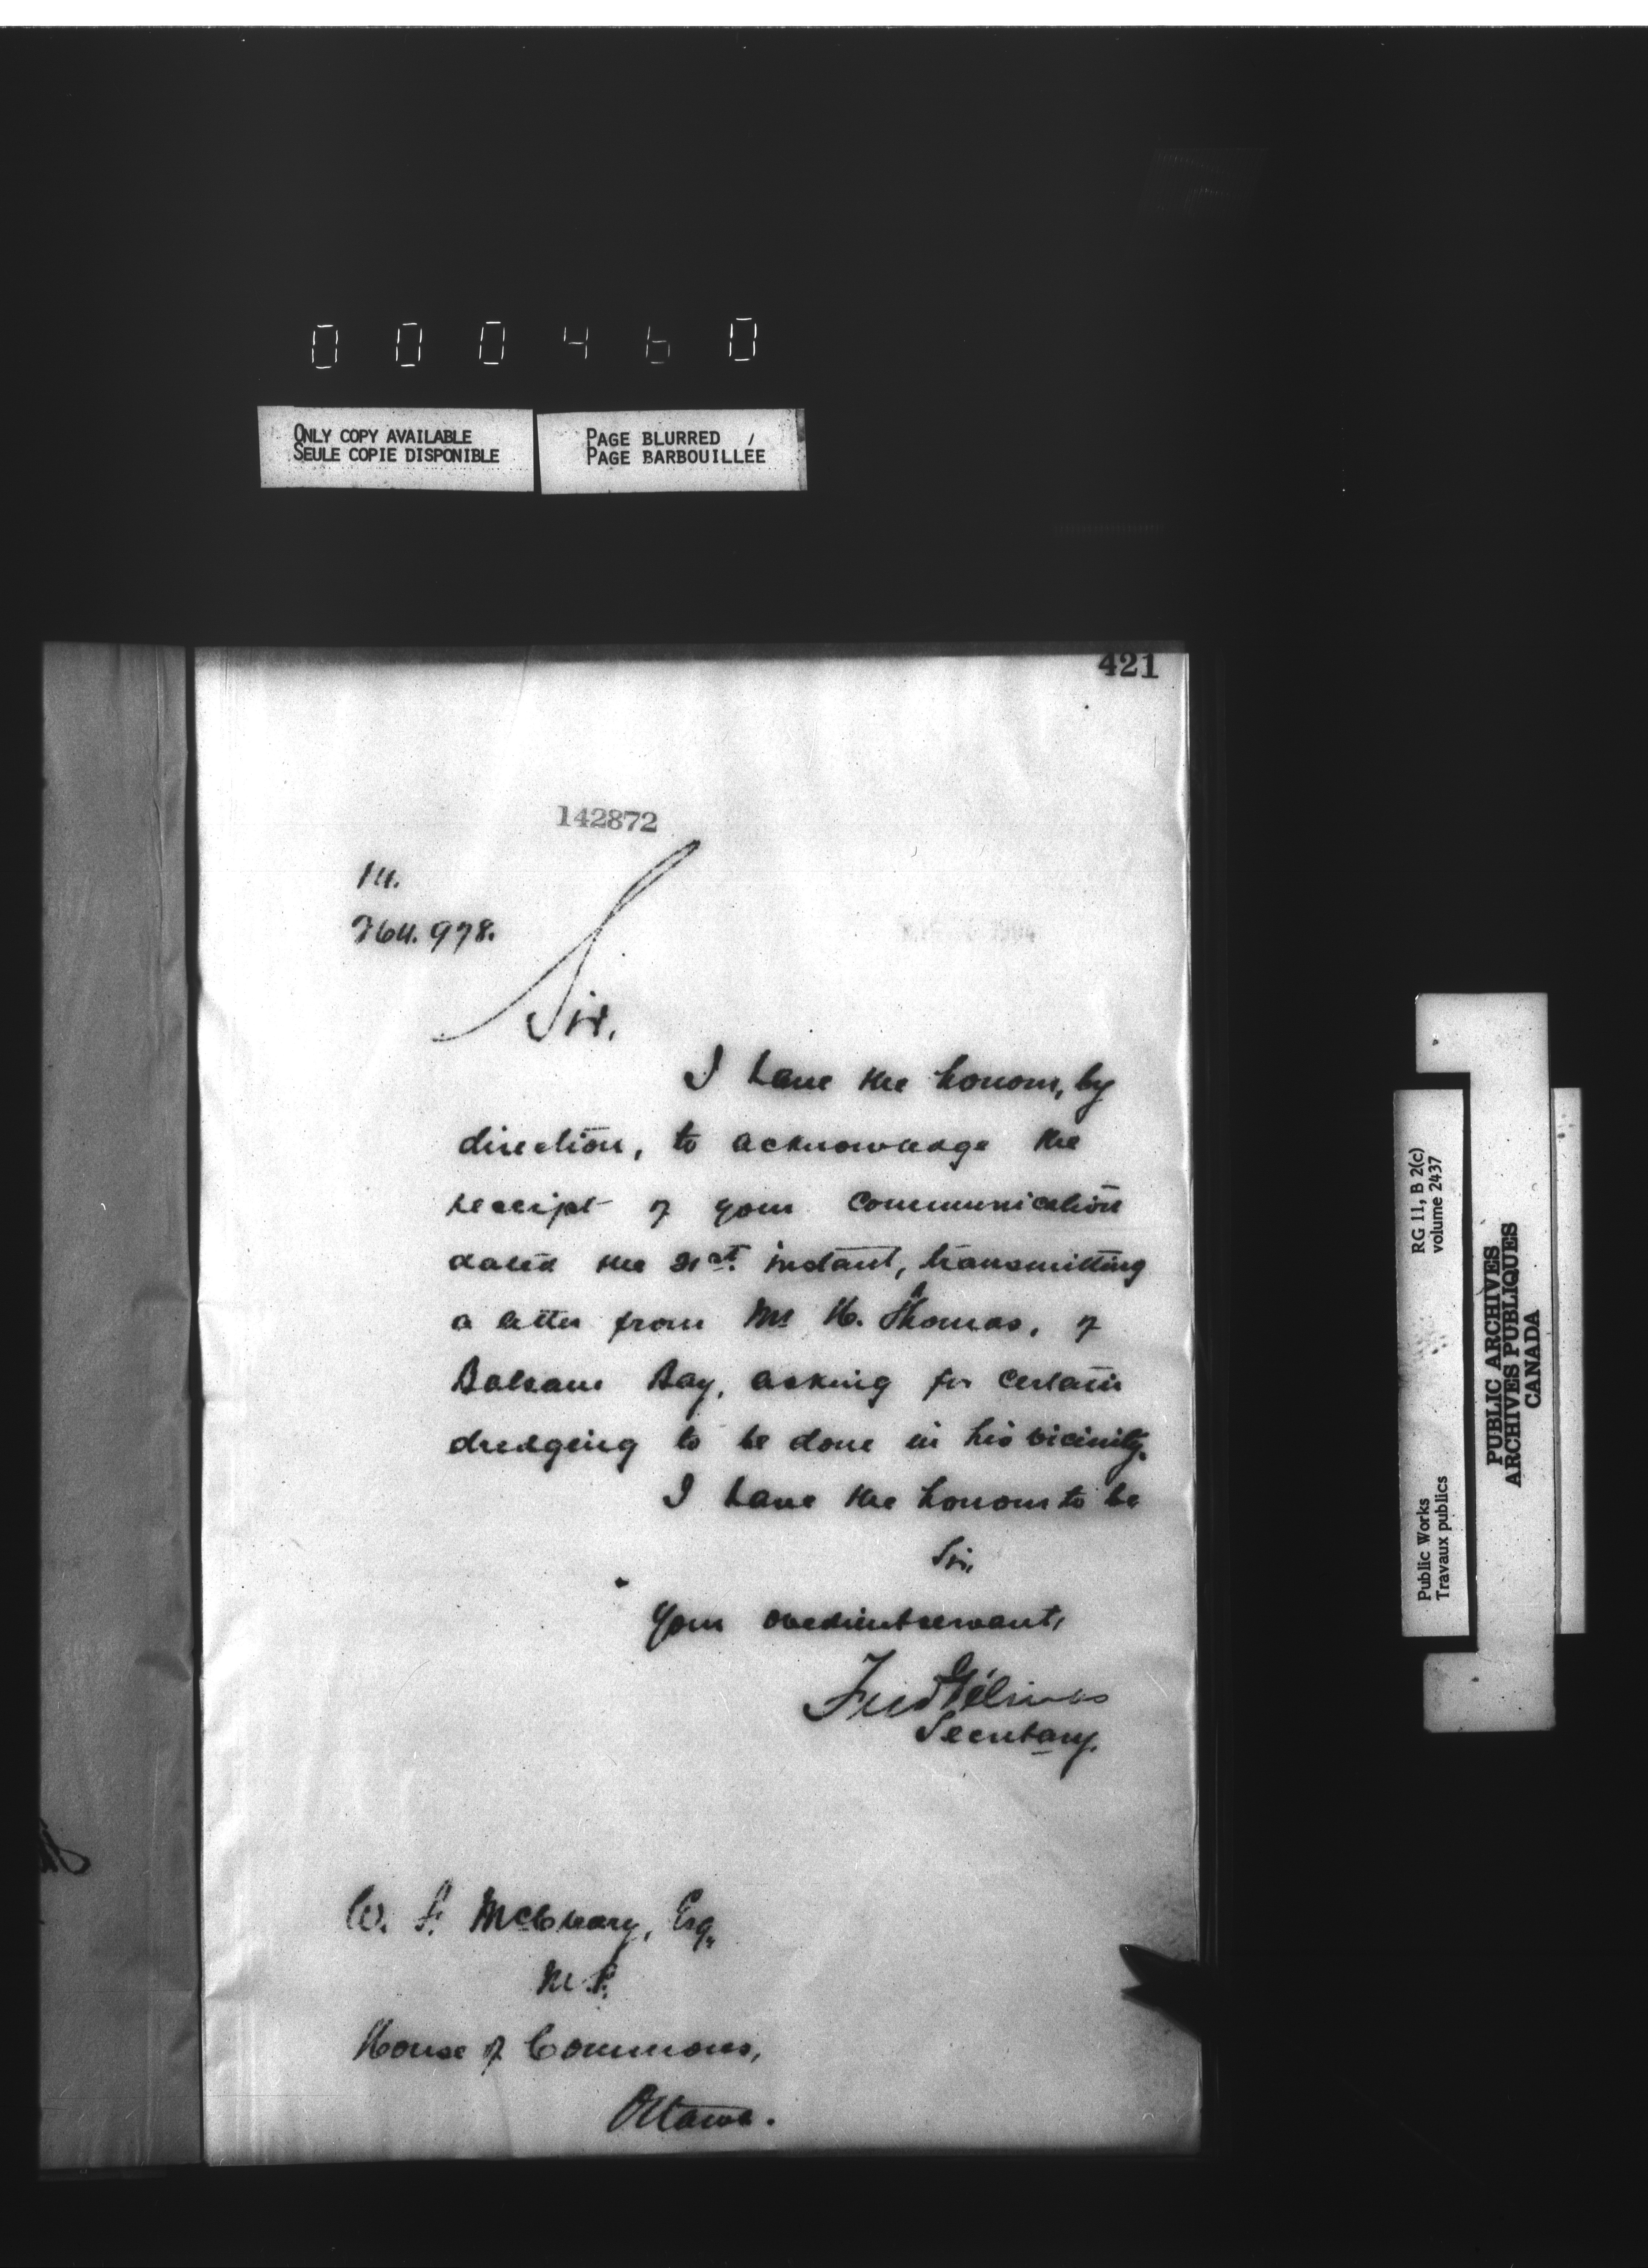 000460
ONLY COPY AVAILABLE
SEULE COPIE DISPONIBLE
PAGE BLURRED /
PAGE BARBOUILLÉE
421
142872
14.
264.978.
1904
Sir,
I have the honour, by
direction, to acknowledge the
receipt of your communication
dated the 21st. instant, transmitting
a letter from Mr H. A. Thomas, of
Balsam Bay, asking for certain
dredging to be done in his vicinity.
I have the honour to be
Sir,
Your obedient servant,
Fred Gélinas
Secretary.
W. F. McCreary, Esq,
M.P.
House of Commons,
Ottawa.
RG 11, B 2(c)
volume 2437
Public Works
Travaux publics
PUBLIC ARCHIVES
ARCHIVES PUBLIQUES
CANADA